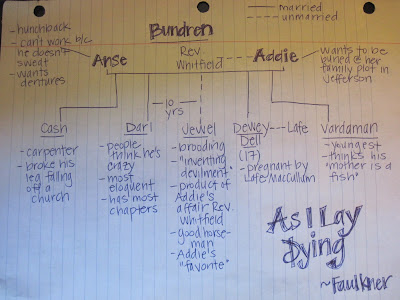 Bundren
married
unmarried
- hunchback
- can't work b/c
he doesn't
sweat
- wants
dentures
Anse
Rev.
Whitfield
Addie
- wants to be
buried @ her
family plot in
Jefferson.
10
yrs
Cash
- carpenter
- broke his
leg falling
off a
church
Darl
- people
think he's
crazy
- most
eloquent
- has most
chapters
Jewel
- brooding
- "inventing
devilment"
- product of
Addie's
affair Rev.
Whitfield
- good horse-
man
- Addie's
"favorite"
Dewey
Dell
(17)
- pregnant by
Lafe MacCullum
Lafe
Vardaman
- youngest
- thinks his
"mother is a
fish"
As I Lay
Dying
~Faulkner